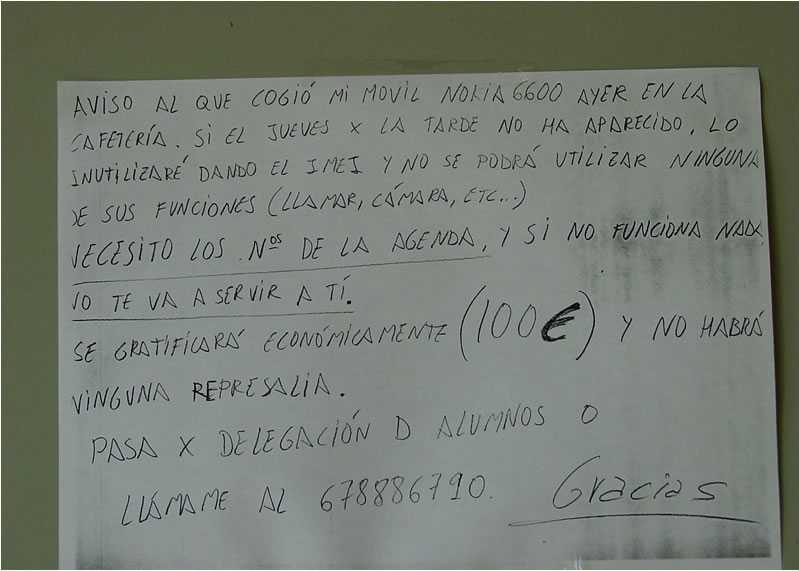 AVISO AL QUE COGIÓ MI MOVIL NOKIA 6600 AYER EN LA
CAFETERÍA. SI EL JUEVES X LA TARDE NO HA APARECIDO, LO
INUTILIZARÉ DANDO EL IMEI Y NO SE PODRÁ UTILIZAR NINGUNA
DE SUS FUNCIONES (LLAMAR, CÁMARA, ETC...)
NECESITO LOS Nos DE LA AGENDA, Y SI NO FUNCIONA NADA
NO TE VA A SERVIR A TÍ.
SE GRATIFICARÁ ECONÓMICAMENTE (100€) Y NO HABRÁ
NINGUNA REPRESALIA.
PASA X DELEGACIÓN D ALUMNOS O
LLÁMAME AL 678886790. Gracias